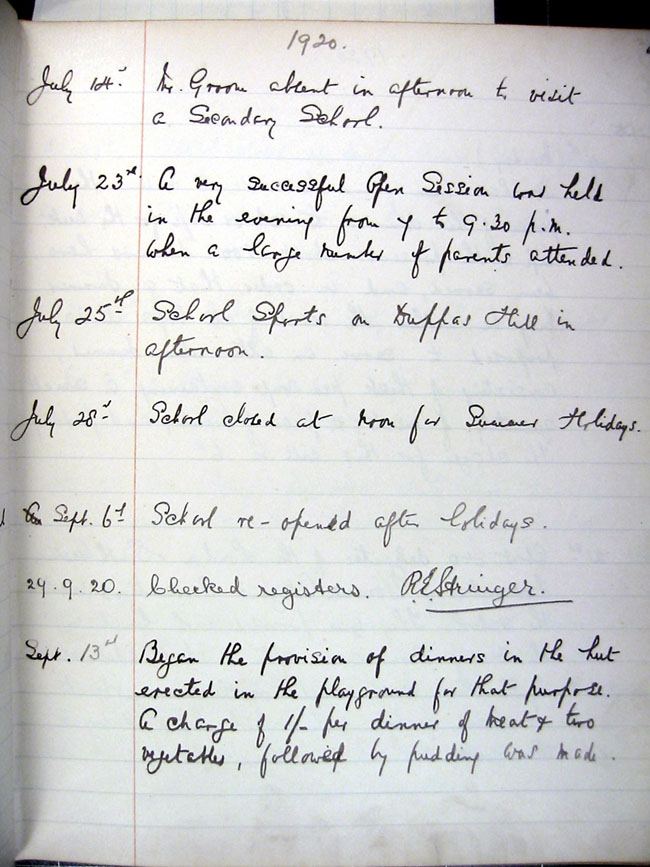 1920.
July 14th Mr. Groom absent in afternoon to visit
a Secondary School.
July 23rd A very successful Open Session was held
in the evening from 7 to 9.30 p.m.
when a large number of parents attended.
July 25th School Sports on Duppas Hill in
afternoon.
July 28th School closed at noon for Summer Holidays.
Sept. 6th School re-opened after holidays.
29.9.20. Checked registers. R.E. Stringer.
Sept. 13th Began the provision of dinners in the hut
erected in the playground for that purpose.
A charge of 1/- per dinner of meat & two
vegetables, followed by pudding was made.